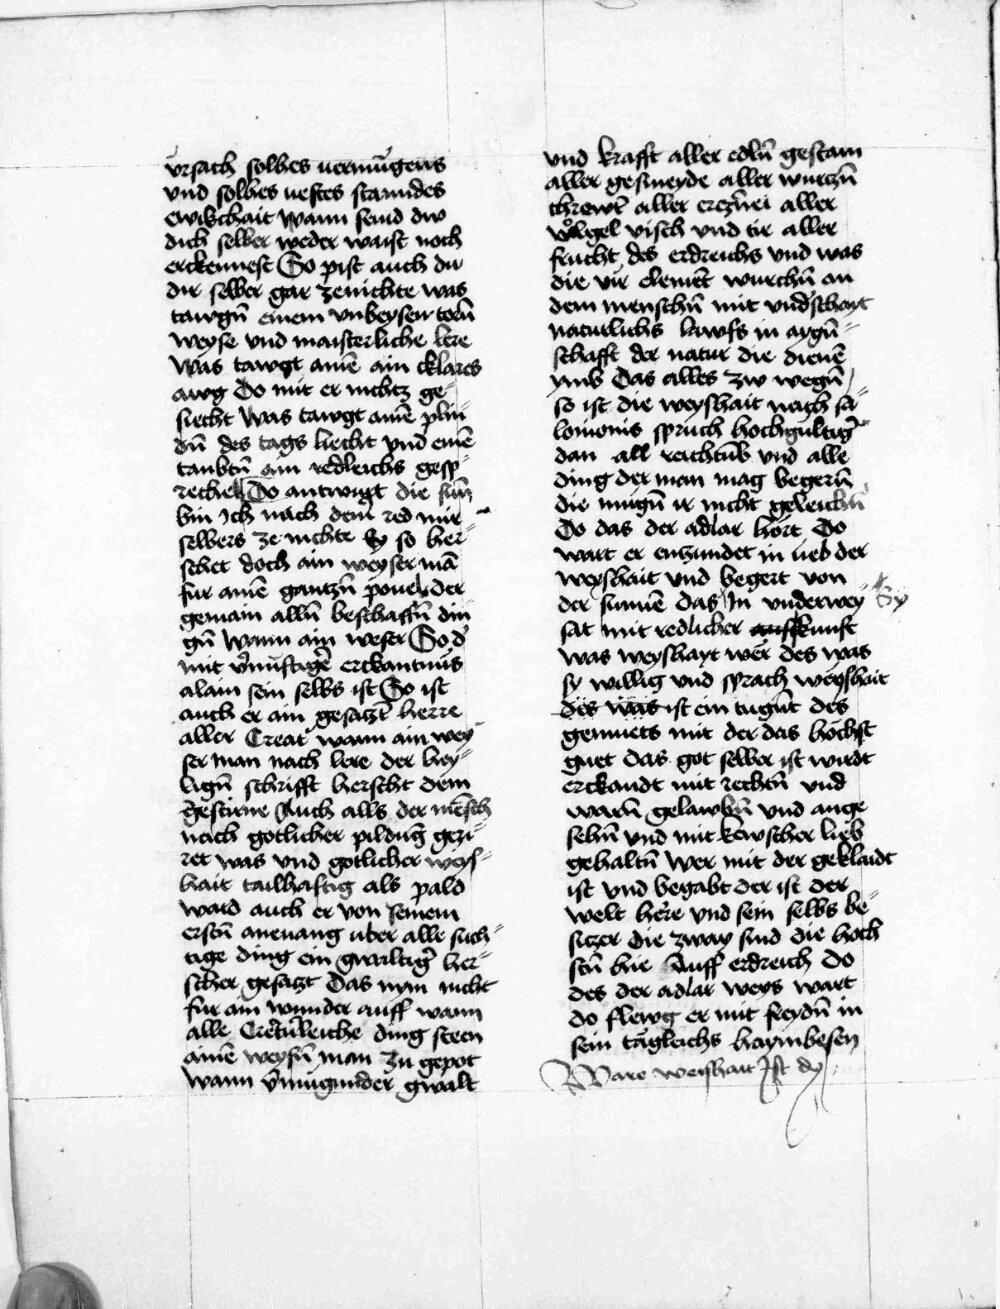 vrsach solhes vermu̅gens
vnd solhes vestes stanndes
ewikchait Wann seind diw
dich selber weder waist noch
erckennest So pist auch du
dir selber gar zenichte was
tawgn̄ einem vnbeysen torn̄
weyse vnd maisterliche lere
Was tawgt aine̅ ain cklares
awg Do mit er nichtz ge-
siecht Was tawgt aine̅ plin-
dn̄ des tags liecht vnd eine̅
taubtn̄ ain redleichs gesp-
reche Do antwurt die sun̄
bin Ich nach dein̄ red mir
selbers ze nichte Ey so her-
schet doch ain weyser ma̅
fur aine̅ gantzn̄ pouel der
gemain alln̄ beschaffn̄ din-
gn̄ Wann ain weser So d'
mit v̓nuftige̓ erckantnus
alain sein selbs ist So ist
auch er ain gesatzt̓ herre
aller Creat̓ wann ain wey
ser man nach lere der hey-
lign̄ schrifft herscht dem
gestirne Auch alls der me̅sch
nach gotlicher pildung gezi-
ret was vnd gotlicher weys-
hait tailhaftig als pald
ward auch er von seinem
erstn̄ anevang uber alle sich-
tige ding ein gwaltig̓ her-
scher gesatzt Das nym nicht
fur ain wunder auff wann
alle Cret̓n̄leiche ding steen
aine̅ weysn̄ man zu gepot
wann v̓mugunder gwalt
vnd krafft aller edln̄ gestain
aller gesmeyde aller wurczn̄
threwt̓ aller erczn̓ei aller
vogel visch vnd tir aller
frucht des erdreichs vnd was
die vir elemēt wurchn̄ an
dem menschn̄ mit vnd̓schayt
naturlichs lawfs in aygn̄-
schafft der natur die diene̅
ymb Das alles zw wegn̄
so ist die weyshait nach sa-
lomonis spruch hochgultig̓
dan all reichtu̅b vnd alle
ding der man mag begern̄
die mugn̄ ir nicht geleichn̄
Do das der adlar hort Do
wart er enzundet in lieb der
weyshait vnd begert von
der sunne̅ das Sy In vnderwey
sat mit redlicher auskunft
was weyshayt wer des was
sy willig vnd sprach weyshait
des was ist ein tugn̄t des
gemuets mit der das hochst
guet das got selber ist wirdt
erckandt mit rechtn̄ vnd
warn̄ gelawbn̄ vnd ange
sehn̄ vnd mit kewscher lieb
gehaltn̄ Wer mit der geklaidt
ist vnd begabt der ist der
welt he̓re vnd sein selbs be-
siczer die zway sind die hoch
stn̄ hie Auff erdreich Do
des der adlar weys wart
do flewg er mit freydn̄ in
sein tägleichs haymbesen
Ware weishait Ist dy